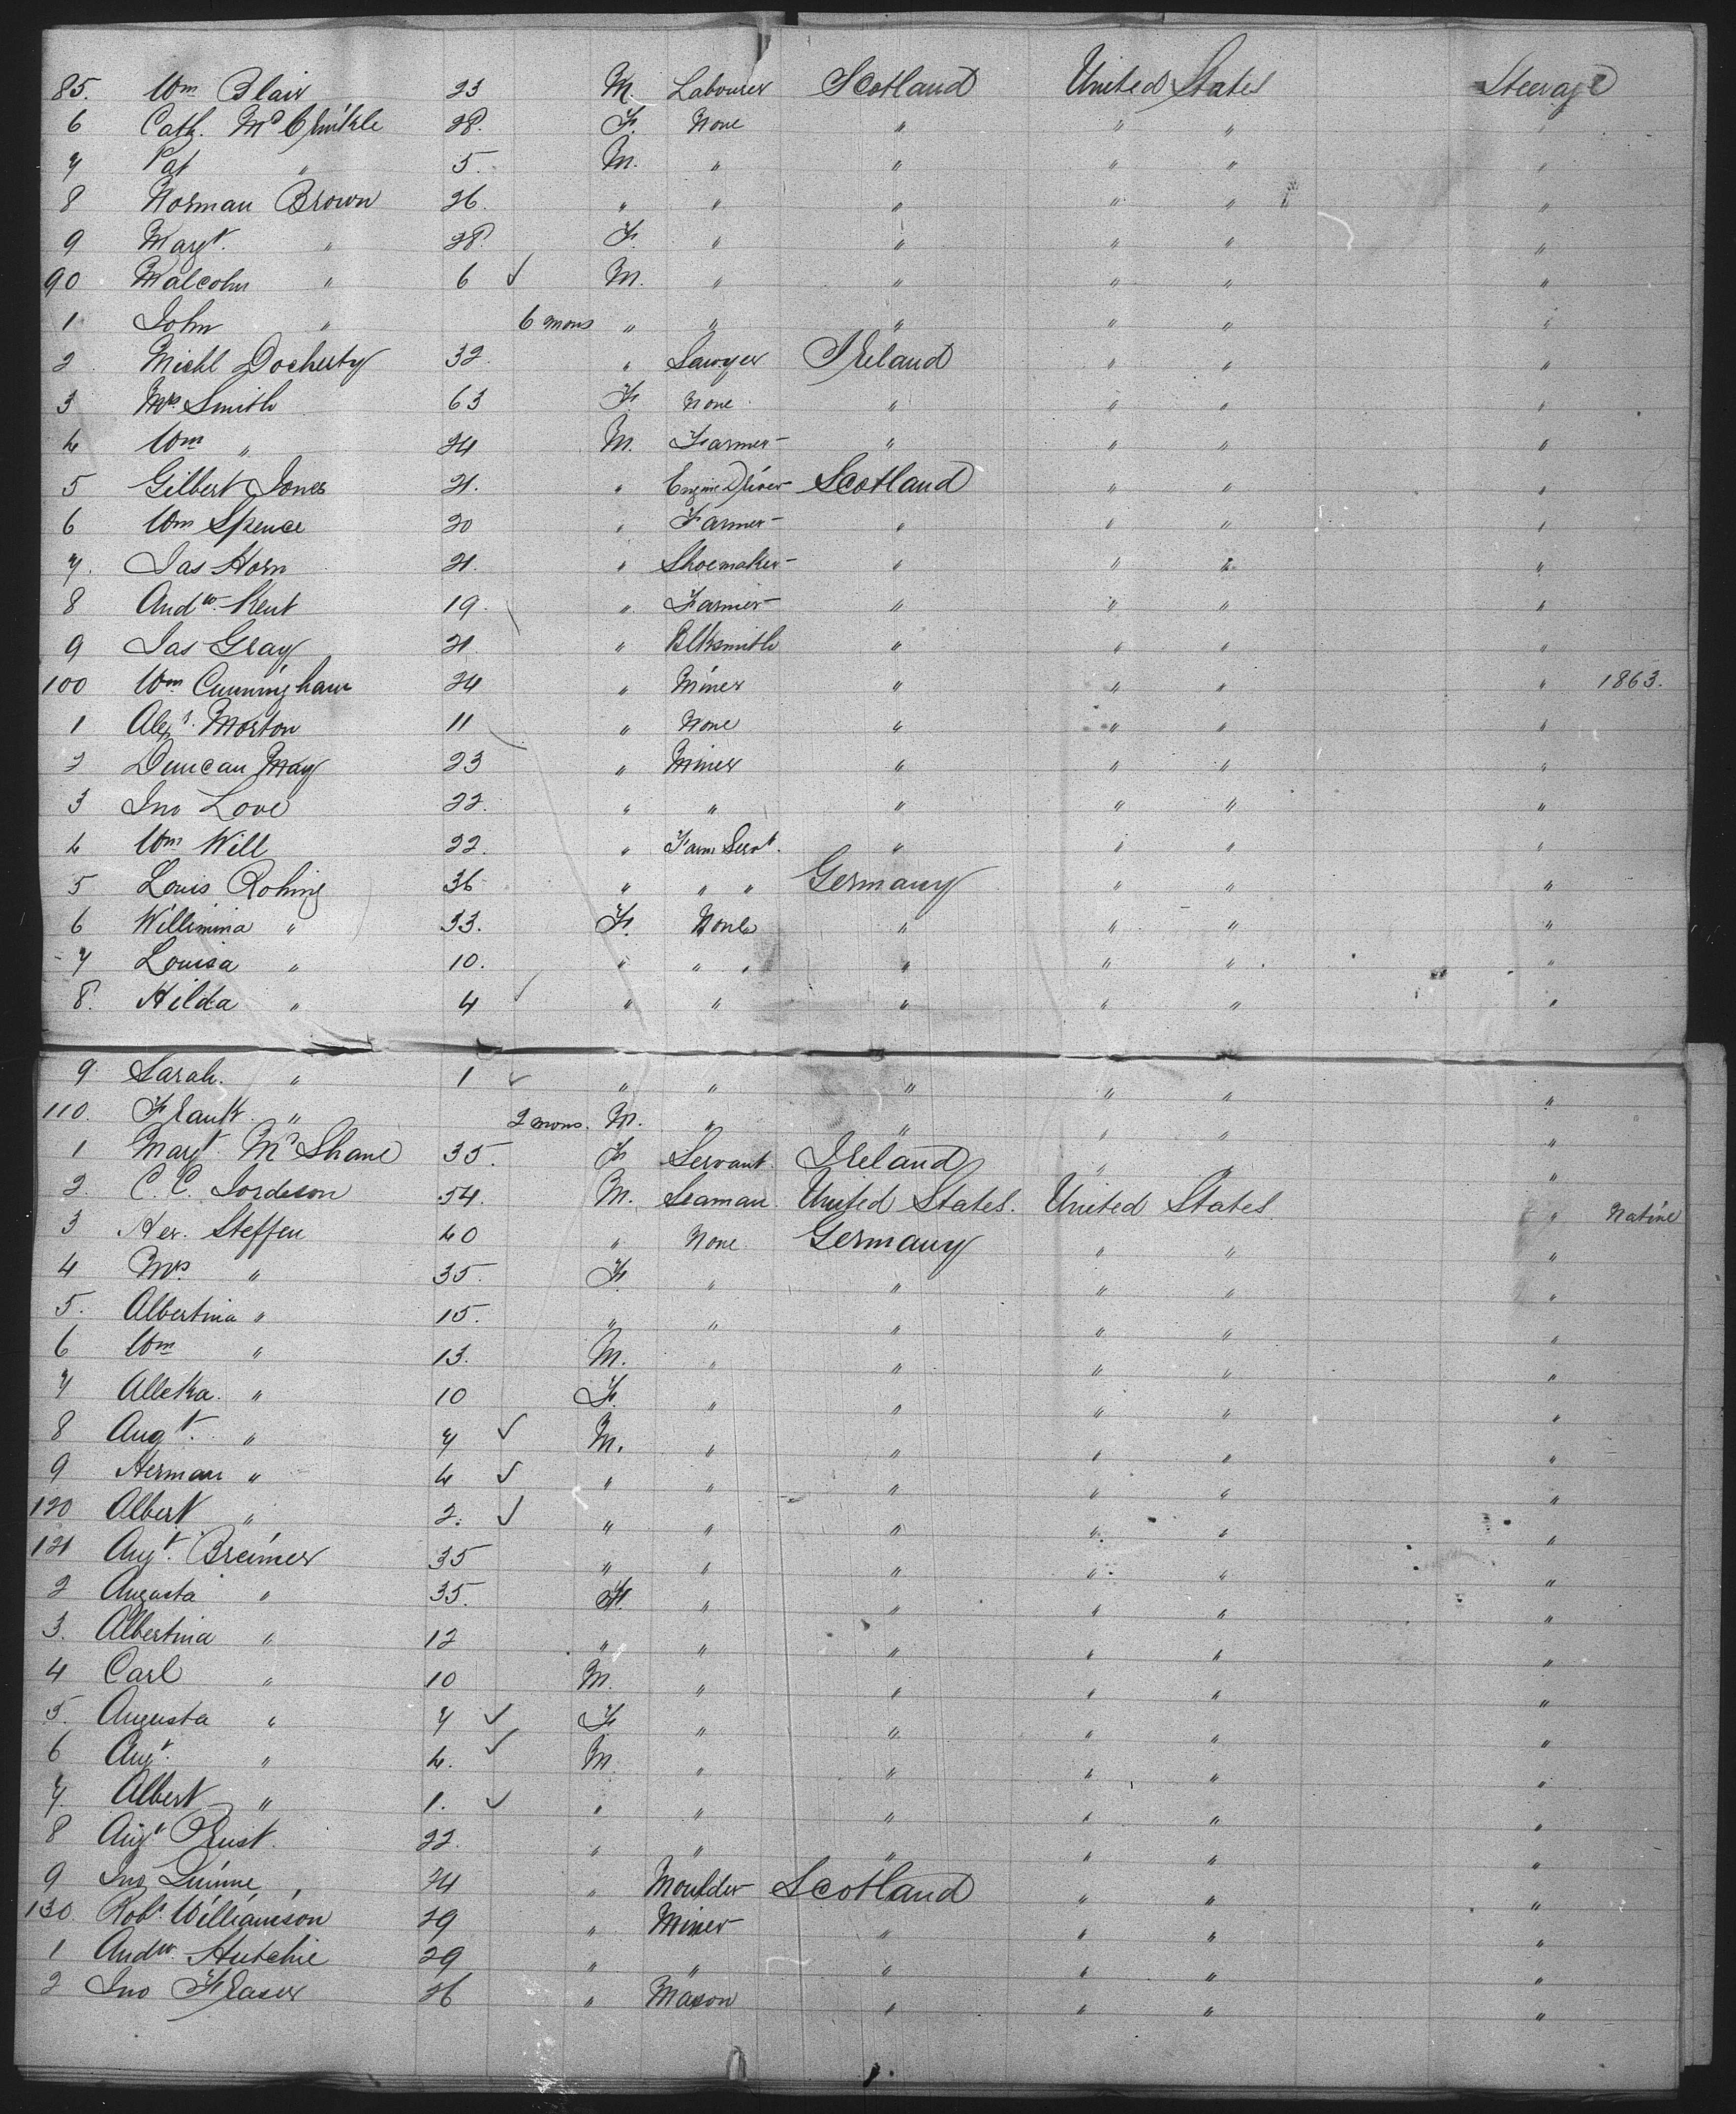 85. Wm Blair 23 M. Labourer Scotland United States Steerage
6 Cath. Mc 28. F. None " " " "
7 Pat " 5. M. " " " " "
8 Norman Brown 26. " " " " " "
9 Margt. " 28. F. " " " " "
90 Malcolm " 6 ✓ M. " " " " "
1 John " 6 mons " " " " " "
2. Michl Docherty 32. " Sawyer Ireland " " "
3 Mrs Smith 63 F. None " " " "
4 Wm " 24 M. Farmer " " " "
5 Gilbert Jones 21. " Engine Driver Scotland " " "
6 Wm Spence 20 " Farmer " " " "
7. Jas Horn 21. " Shoemaker " " " "
8 Andw. Kent 19. " Farmer " " " "
9 Jas Gray 21. " Blksmith " " " "
100 Wm. Cunningham 24 " Miner " " " " 1863.
1 Alexr. Morton 11 " None " " " "
2 Duncan May 23 " Miner " " " "
3 Jno Love 22. " " " " " "
4 Wm Will 22. " Farm Servt. " " " "
5 Louis Rohing 36 " " " Germany " " "
6 Willimina " 33. F. None " " " "
7 Louisa " 10. " " " " " " "
8. Hilda " 4 ✓ " " " " " "
9 Sarah. " 1 ✓ " " " " " "
110. Frank " 2 mons. M. " " " " "
1 Margt. McShane 35. F. Servant. Ireland " " "
2. C. C. Jordeson 54. M. Seaman. United States. United States " Native
3 Her. Steffen 40 " None Germany " " "
4 Mrs " 35. F. " " " " "
5. Albertina " 15. " " " " " "
6 Wm " 13. M. " " " " "
7 Alleka. " 10 F. " " " " "
8 Augt. " 7 ✓ M. " " " " "
9 Herman " 4 ✓ " " " " " "
120 Albert " 2. ✓ " " " " " "
121 Augt. Breimer 35 " " " " " "
2 Augusta " 35. F. " " " " "
3. Albertina " 12 " " " " " "
4 Carl " 10 M. " " " " "
5. Augusta " 7 ✓ F. " " " " "
6 Augt. " 4. ✓ M. " " " " "
7. Albert " 1. ✓ " " " " " "
8 Augt Prust. 22. " " " " " "
9 Jno Quinne 24 " Moulder Scotland " " "
130. Robt. Williamson 29 " Miner " " " "
1 Andw. Hutchie 29 " " " " " "
2 Jno Fraser 26 " Mason " " " "